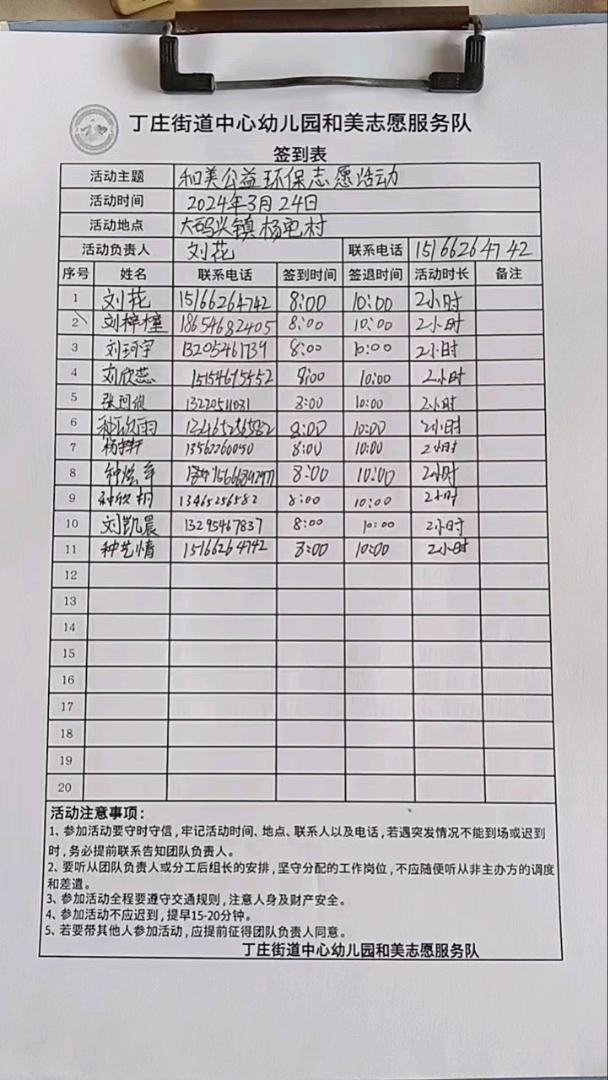 丁庄街道中心幼儿园和美志愿服务队
签到表
活动主题 和美公益环保志愿活动
活动时间 2024年3月24日
活动地点 大码头镇杨屯村
活动负责人 刘花 联系电话 15166264742
序号 姓名 联系电话 签到时间 签退时间 活动时长 备注
1 刘花 15166264742 8:00 10:00 2小时
2 刘梓橦 18654682405 8:00 10:00 2小时
3 刘珂宇 13205461739 8:00 10:00 2小时
4 刘欣蕊 15154615552 8:00 10:00 2小时
5 张珂欣 13220511031 8:00 10:00 2小时
6 种欣雨 8:00 10:00 2小时
7 13562260050 8:00 10:00 2小时
8 8:00 10:00 2小时
9 种欣桐 13465256582 8:00 10:00 2小时
10 刘凯晨 13295467837 8:00 10:00 2小时
11 种艺情 15166264742 8:00 10:00 2小时
12
13
14
15
16
17
18
19
20
活动注意事项：
1、参加活动要守时守信，牢记活动时间、地点、联系人以及电话，若遇突发情况不能到场或迟到
时，务必提前联系告知团队负责人。
2、要听从团队负责人或分工后组长的安排，坚守分配的工作岗位，不应随便听从非主办方的调度
和差遣。
3、参加活动全程要遵守交通规则，注意人身及财产安全。
4、参加活动不应迟到，提早15-20分钟。
5、若要带其他人参加活动，应提前征得团队负责人同意。
丁庄街道中心幼儿园和美志愿服务队